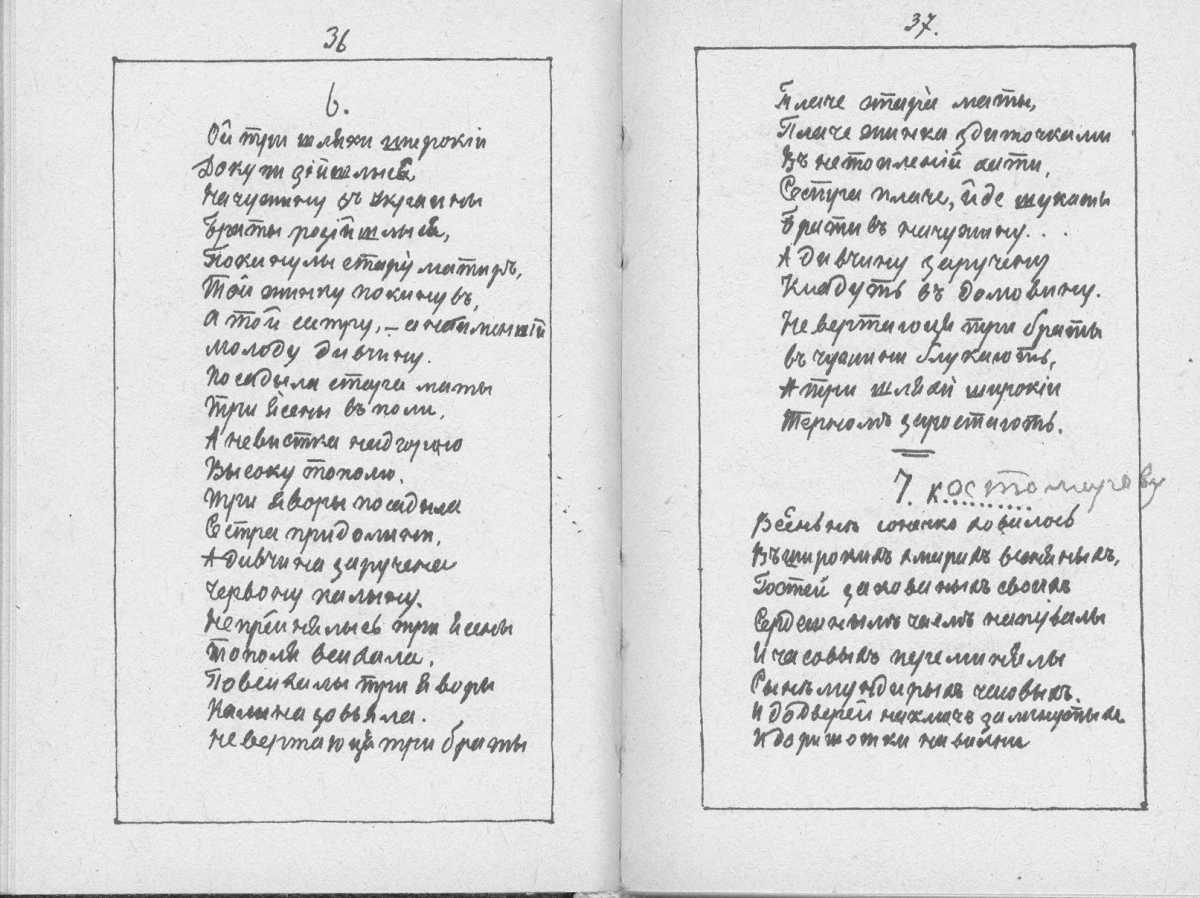 36
6.
Ой три шляхи широкіи
Докупи зійшлыся
На чужину съ Украины
Браты розійшлыся,
Покинулы старую матирь,
Той жинку покинувъ,
А той систру, – а найменшій
Молоду дивчину.
Посадыла стара маты
Три ясены въ поли,
А невистка надгорою
Высоку тополю.
Три яворы посадыла
Сестра придолини,
А дивчина заручена
Червону калыну.
Непрейнялысь три ясены
Тополя всихала,
Повсихалы три яворы
Калына завъяла.
Невертаюця три браты
37.
Плаче стара маты,
Плаче жинка здиточками
Въ нетопленій хати,
Сестра плаче, йде шукаты
Бративъ начужину...
А дивчину заручену
Кладуть въ домовину.
Невертаюця три браты
въ чужини блукають,
А три шляхи широкіи
Терномъ заростають.
7. Костомарову
Весеннѣ сонечко ховалось
Въ широкихъ хмарахъ весняныхъ,
Гостей закованыхъ своихъ
Сердешнымъ чаемъ напувалы
И часовыхъ переминялы
Сынѣмундирыхъ часовыхъ.
И до дверей наключъ замкнутыхъ
И до ришотки навикни